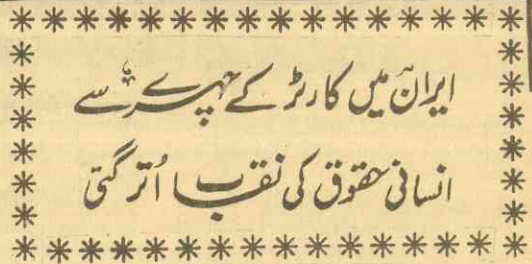 ایران میں کارٹر کے چہرے سے
انسانی حقوق کی نقاب اُتر گئی